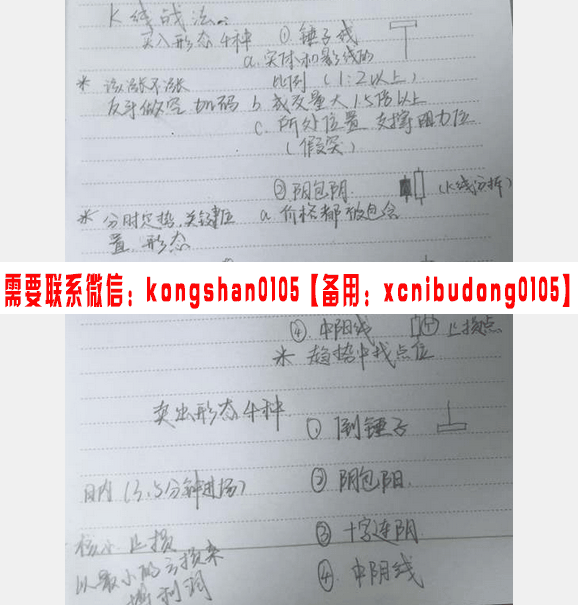 K线战法
买入形态4种 ① 锤子线
a. 实体和影线的
比例 (1:2以上)
* 该涨不涨
反手做空 加码 b 成交量大1.5倍以上
c. 所处位置 支撑阻力位
(假突)
② 阴包阴. (K线分析)
* 分时定势,关键位 a 价格都被包含
置 形态
需要联系微信：kongshan0105【备用：xcnibudong0105】
④ 中阳线 止损点
* 趋势中找点位
卖出形态4种 ① 倒锤子
日内 (3、5分钟进场) ② 阴包阳.
核心 止损 ③ 十字连阴
以最小的亏损来 ④ 中阴线
利润